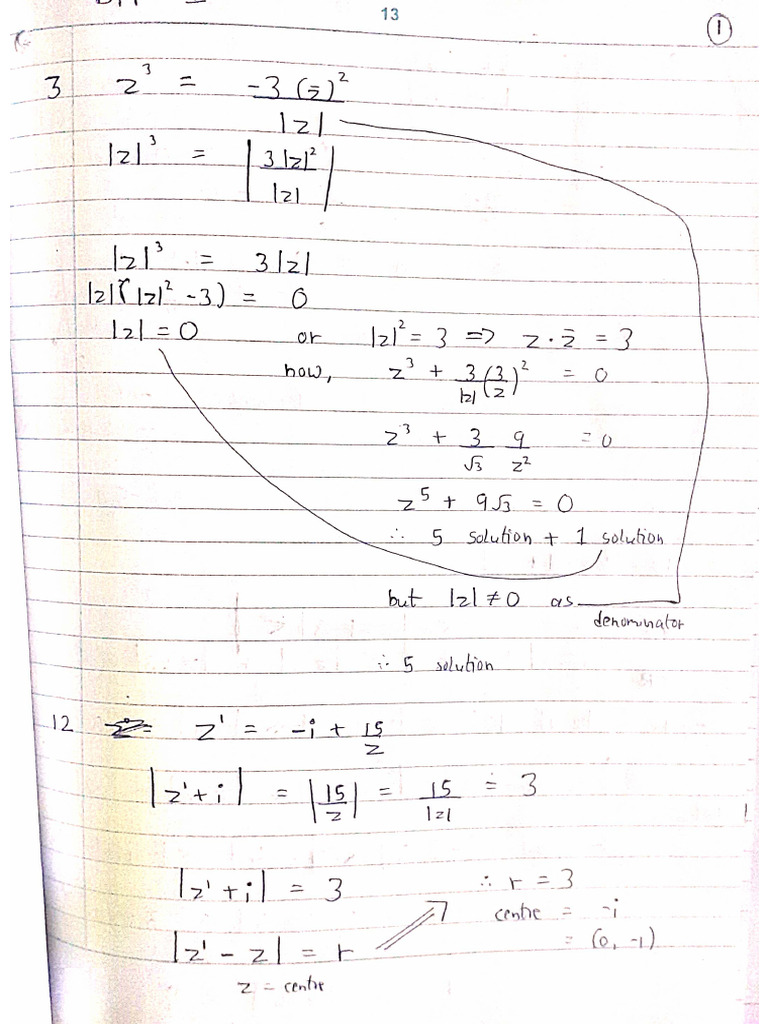 13
1
3 z³ = -3 (z̄)² / |z|
|z|³ = |3|z|² / |z||
|z|³ = 3|z|
|z|(|z|² - 3) = 0
|z| = 0 or |z|² = 3 ⇒ z · z̄ = 3
now, z³ + 3/|z| (3/z)² = 0
z³ + 3/√3 9/z² = 0
z⁵ + 9√3 = 0
∴ 5 solution + 1 solution
but |z| ≠ 0 as
denominator
∴ 5 solution
12 z' = -i + 15/z
|z' + i| = |15/z| = 15/|z| = 3
|z' + i| = 3 ∴ r = 3
centre = -i
|z' - z| = r = (0, -1)
z = centre